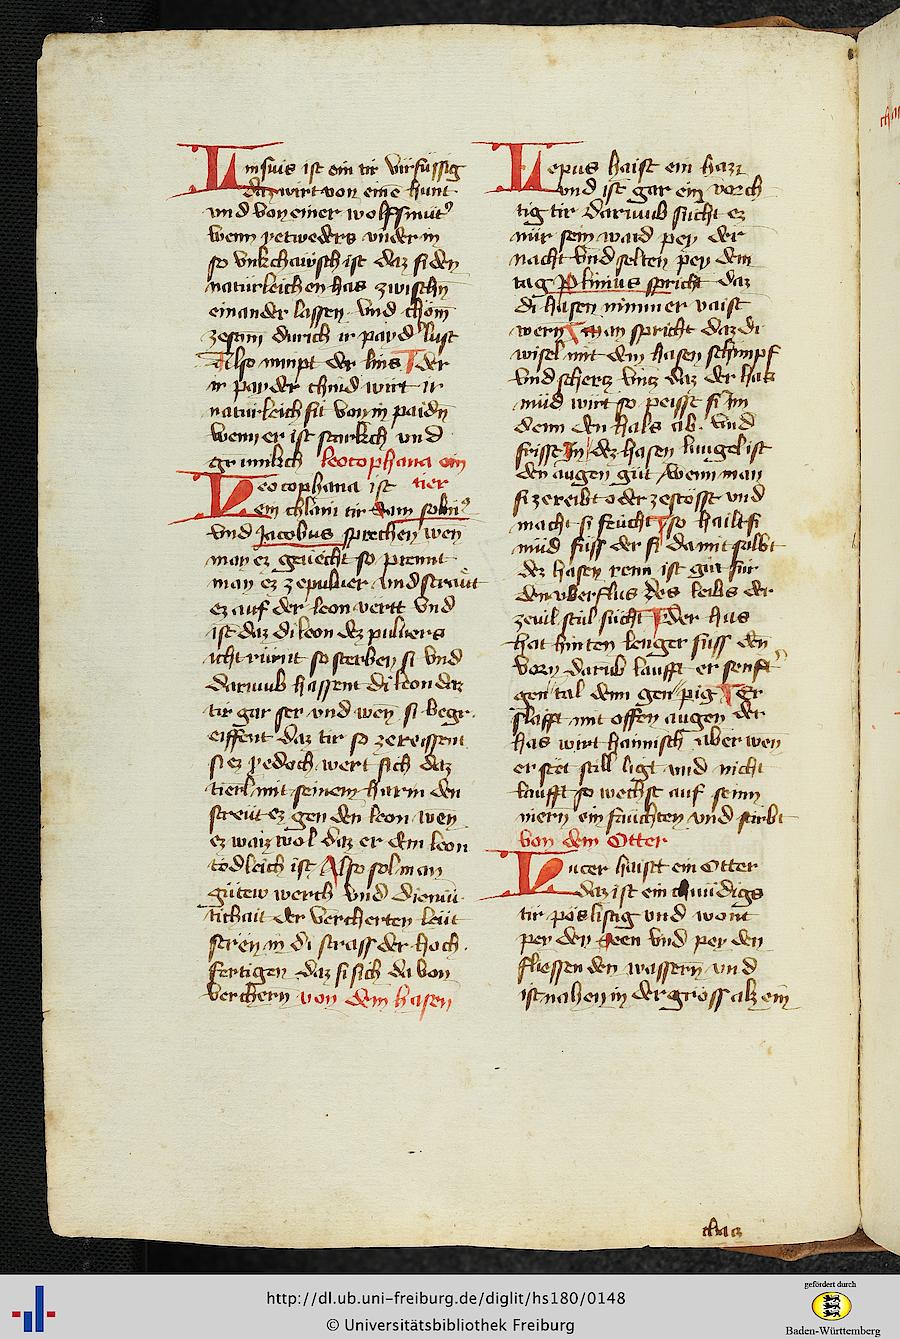 Linsius ist ein tir virfüssig
daz wirt von eine hunt
vnd von einer wolfsmut
wenn yetweders vnder in
so vnkchawsch ist daz si den
naturleichen has zwischn
einander lassen vnd chom
zesam durich ir payd lust
Also nimpt der lins der
ir payder chind wirt ir
naturleich sit von in paidn
wenn er ist starkch vnd
grimikch leocophana ein
tier
Leocophana ist
ein chlain tir dam solin
vnd Jacobus sprechen wen
man ez geuecht so prennt
man ez ze puluer vnd straut
ez auf der leon vertt vnd
ist daz di leon dez puluers
icht rürnt so sterben si vnd
darumb hassent di leon daz
tir gar ser vnd wen si begr
eiffent daz tir so zereissent
si ez yedoch wert sich daz
tierl mit seinem harm den
streut ez gen den leon wen
ez waiz wol daz er dem leon
tödleich ist Also sol man
gutew werch vnd diemü
tichait der vercherten leut
seren in di strass der hoch
fertigen daz si sich da von
verchern von dem hasen
Lepus haist ein hazz
vnd ist gar ein vorch
tig tir darumb sucht ez
nür sein waid pey der
nacht vnd selten pey dem
tag Plinius spricht daz
di hasen nimmer vaist
wern man spricht daz di
wisel mit dem hasen schimpf
vnd schertz vntz daz der has
müd wirt so peisst si im
denn den hals ab vnd
frisst in dez hasen lungel ist
den augen gut wenn man
si zereibt oder zestösst vnd
macht si feucht so hailt si
müd füss der si damit salbt
dez hasen renn ist gut für
den vberflus des leibs der
ze vil stul sucht der has
hat hinten lenger füss den
vorn darub laufft er senft
gen tal denn gen pig Er
slafft mit offen augen der
has wirt haimisch aber wen
er stet still ligt vnd nicht
laufft so wechst auf seinn
niern ein fauchten vnd stirbt
von dem Otter
Lucer haist ein Otter
daz ist ein chnüdigs
tir pöslistig vnd wont
pey den seen vnd pey den
fliessenden wassern vnd
ist nahen in der gröss alz ein
chaz
http://dl.ub.uni-freiburg.de/diglit/hs180/0148
© Universitätsbibliothek Freiburg
gefördert durch
Baden-Württemberg